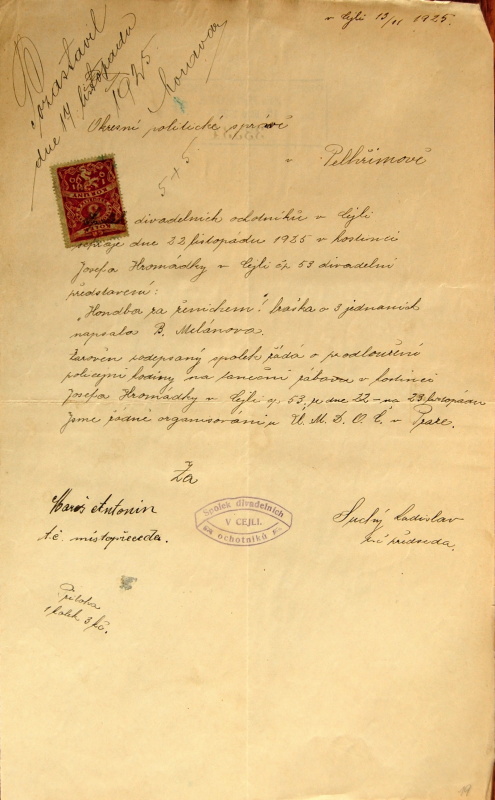 v Cejli 13/11 1925.
Pozastavil
dne 14 listopadu
1925
Okresní politické správě
v Pelhřimově
5 + 5
divadelních ochotníků v Cejli
dne 22 listopadu 1925 v hostinci
Josefa Hromádky v Cejli čp 53 divadelní
představení:
„Honba za ženichem“. fraška o 3 jednáních
napsala B. Melánova.
Zároveň podepsaný spolek žádá o prodloužení
policejní hodiny na taneční zábavu v hostinci
Josefa Hromádky v Cejli čp. 53. ze dne 22 – na 23 listopadu
Jsme řádně organisováni u Ú. M. D. O. Č. v Praze.
Za
Spolek divadelních
V CEJLI.
ochotníků
Antonín
t. č. místopředseda.
Suchý Ladislav
t. č. předseda.
Příloha
1 kolek 3 Kč.